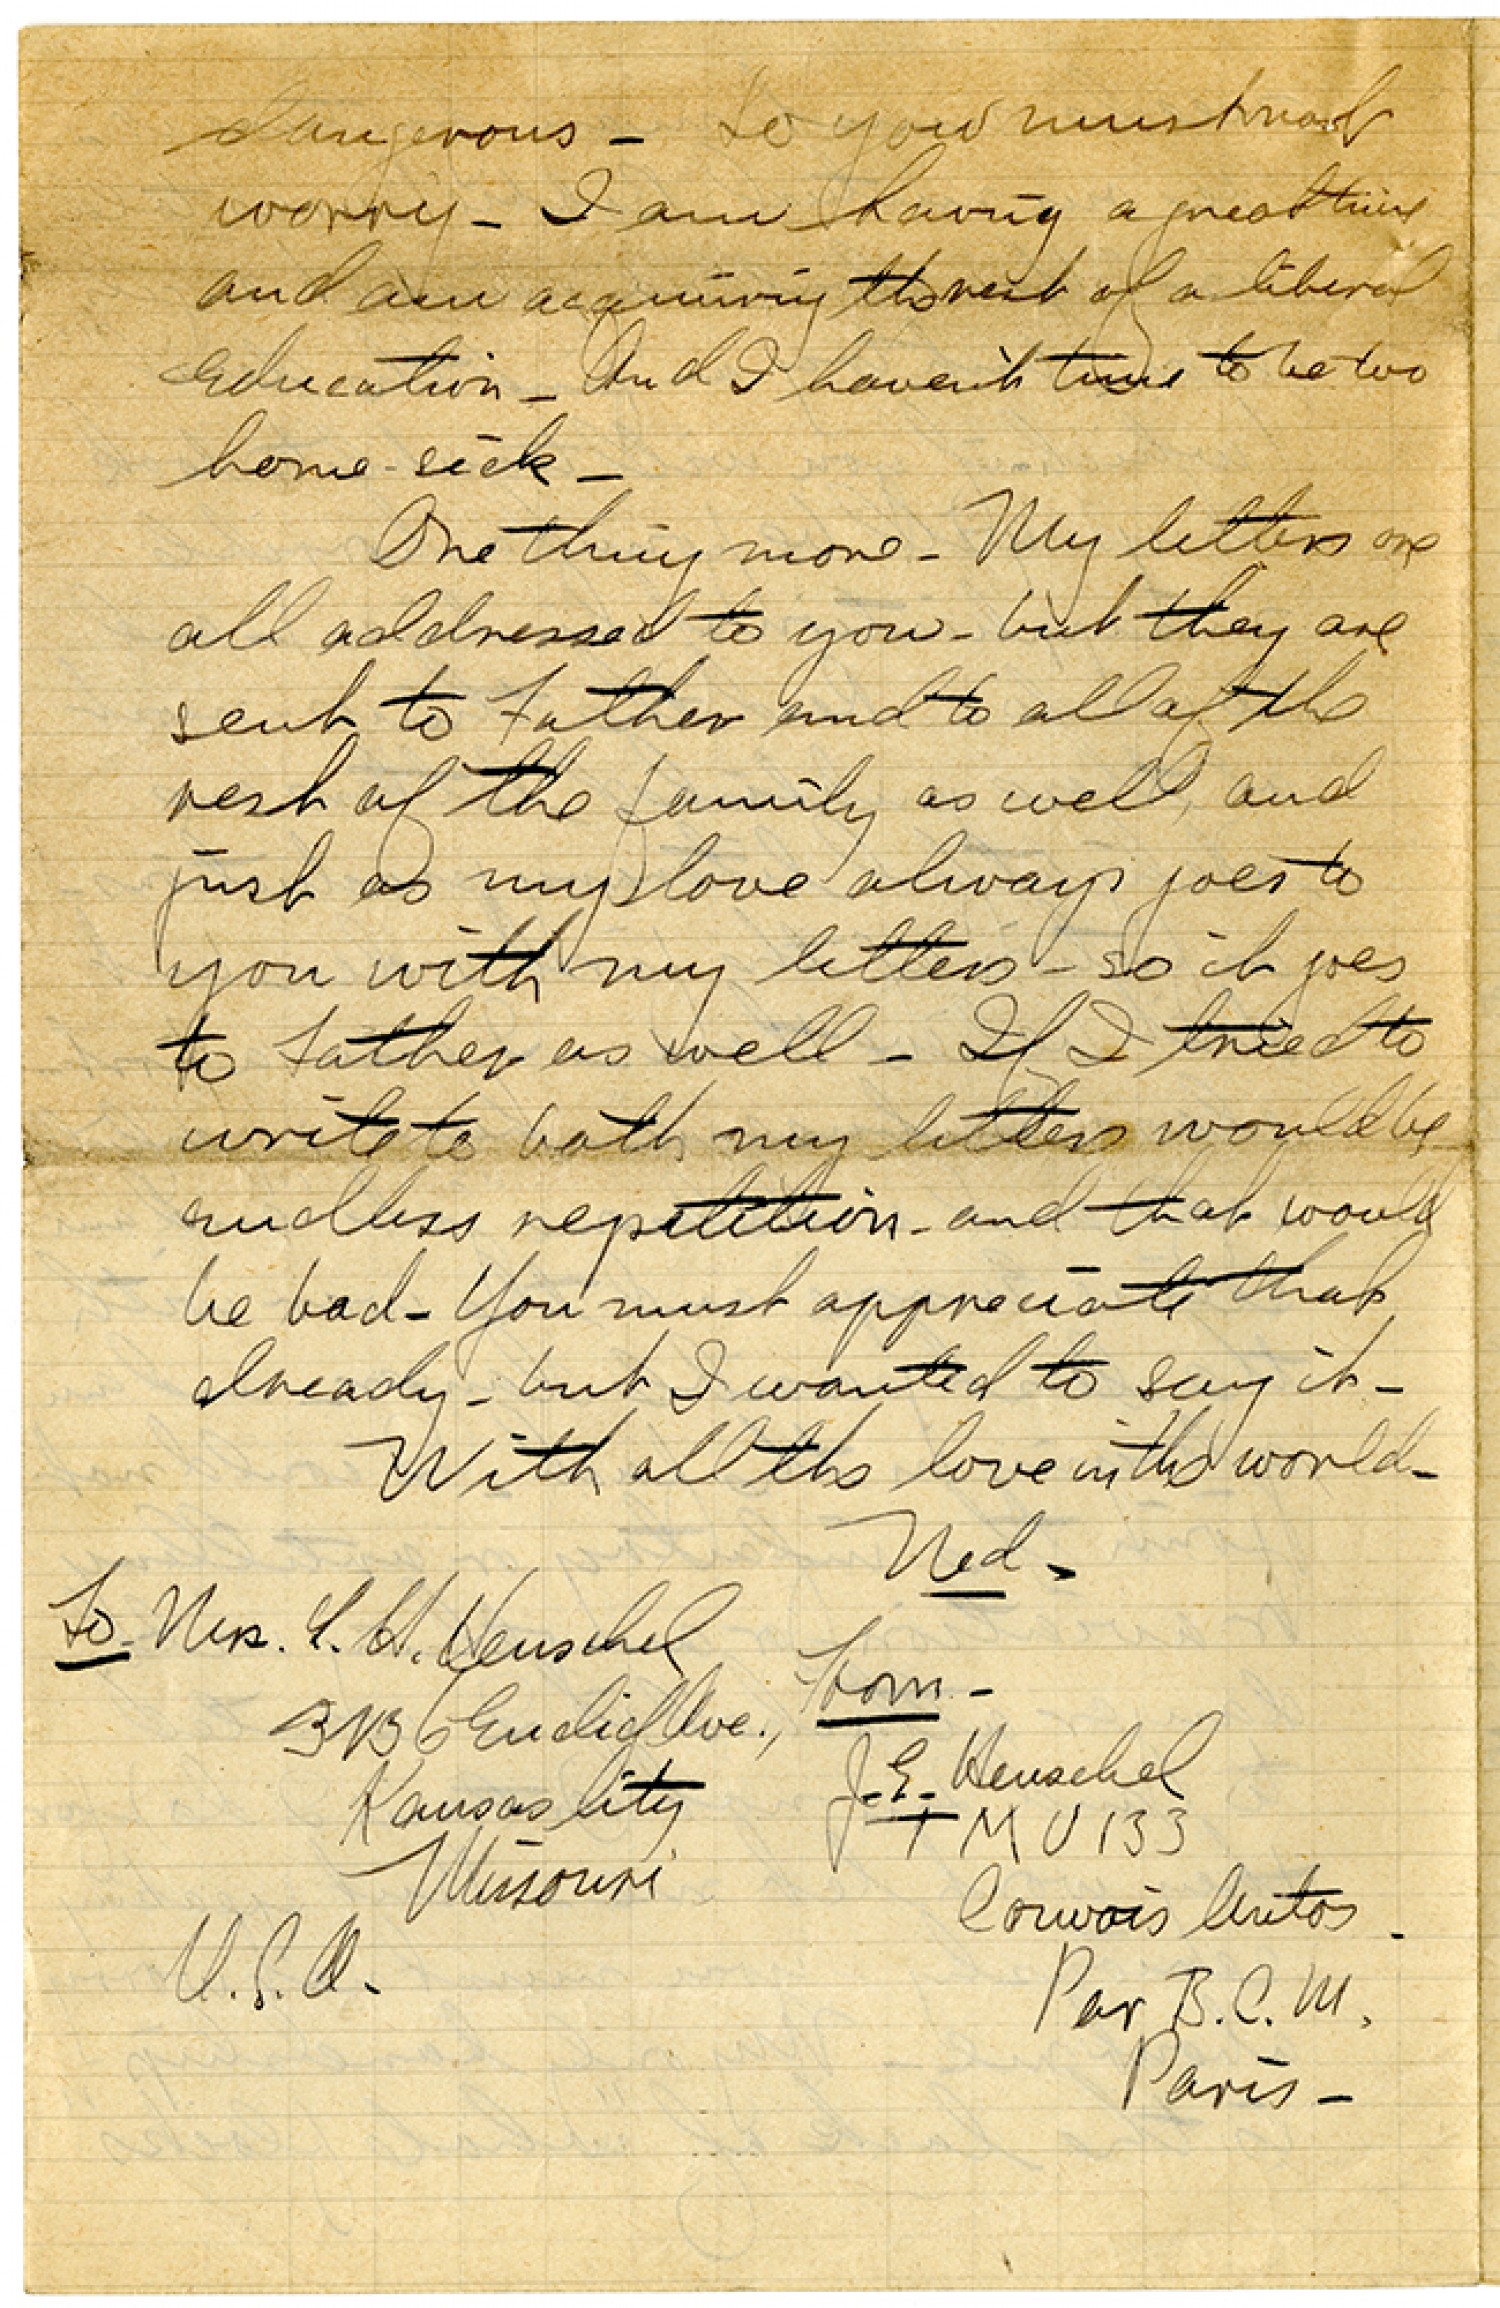 dangerous – So you must not
worry – I am having a great time
and am acquiring the rest of a liberal
education – And I haven't time to be too
home-sick –
One thing more – My letters are
all addressed to you – but they are
sent to Father and to all of the
rest of the family as well, and
just as my love always goes to
you with my letters – so it goes
to Father as well – If I tried to
write to both my letters would be
endless repetition – and that would
be bad – You must appreciate that
already – but I wanted to say it –
With all the love in the world –
Ned –
To – Mrs. G. H. Henschel
Euclid Ave.,
Kansas City
Missouri
U.S.A.
From –
J. E. Henschel
T M U 133
Convois Autos –
Par B.C.M.
Paris –